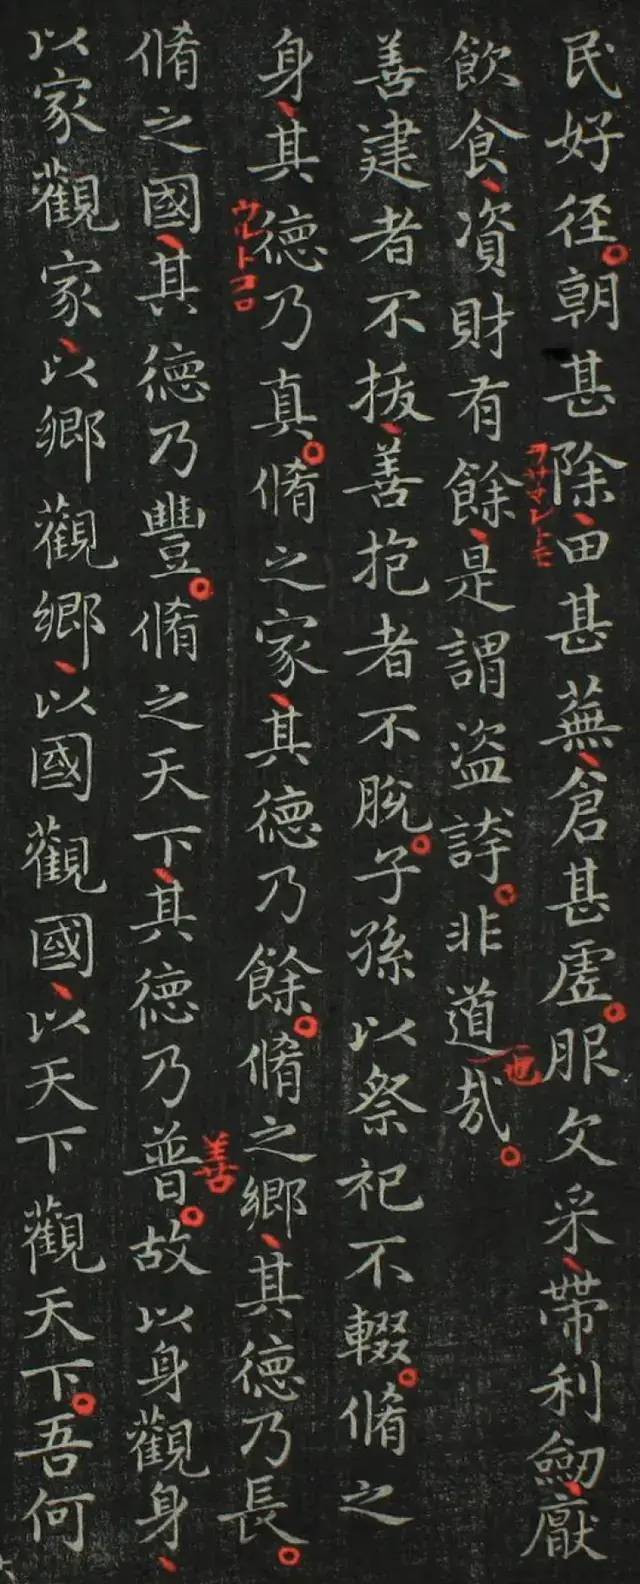 民好径。朝甚除、田甚蕪、倉甚虗。服文采、帶利劒、猒
ヲサマレトモ
飲食、資財有餘、是謂盗誇。非道哉。
也
善建者不拔、善抱者不脫。子孫以祭祀不輟。脩之
身、其德乃真。脩之家、其德乃餘。脩之鄉、其德乃長。
ウルトコロ
脩之國、其德乃豐。脩之天下、其德乃普。故以身觀身、
善
以家觀家、以鄉觀鄉、以國觀國、以天下觀天下。吾何